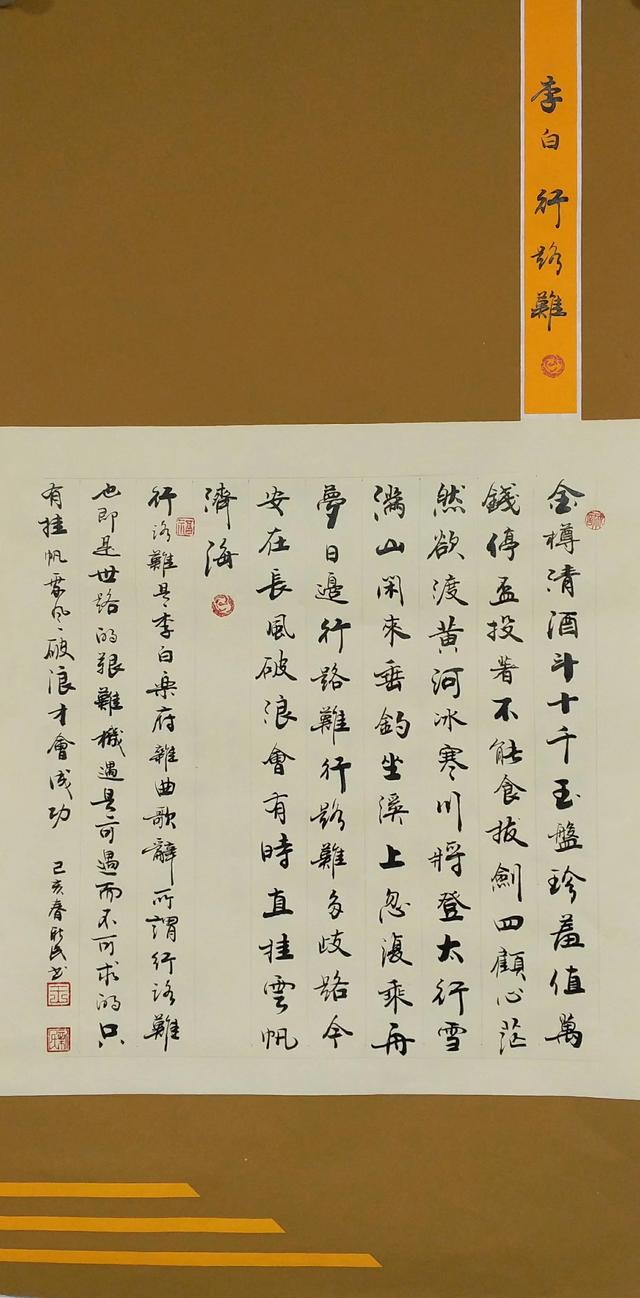 李白 行路難
金樽清酒斗十千玉盤珍羞值萬
錢停盃投箸不能食拔劍四顧心茫
然欲渡黃河冰寒川將登太行雪
滿山閑來垂釣坐溪上忽復乘舟
夢日邊行路難行路難多歧路今
安在長風破浪會有時直挂雲帆
濟海
行路難是李白樂府雜曲歌辭所謂行路難
也即是世路的艱難機遇是可遇而不可求的只
有挂帆乘風破浪才會成功 己亥春 民书